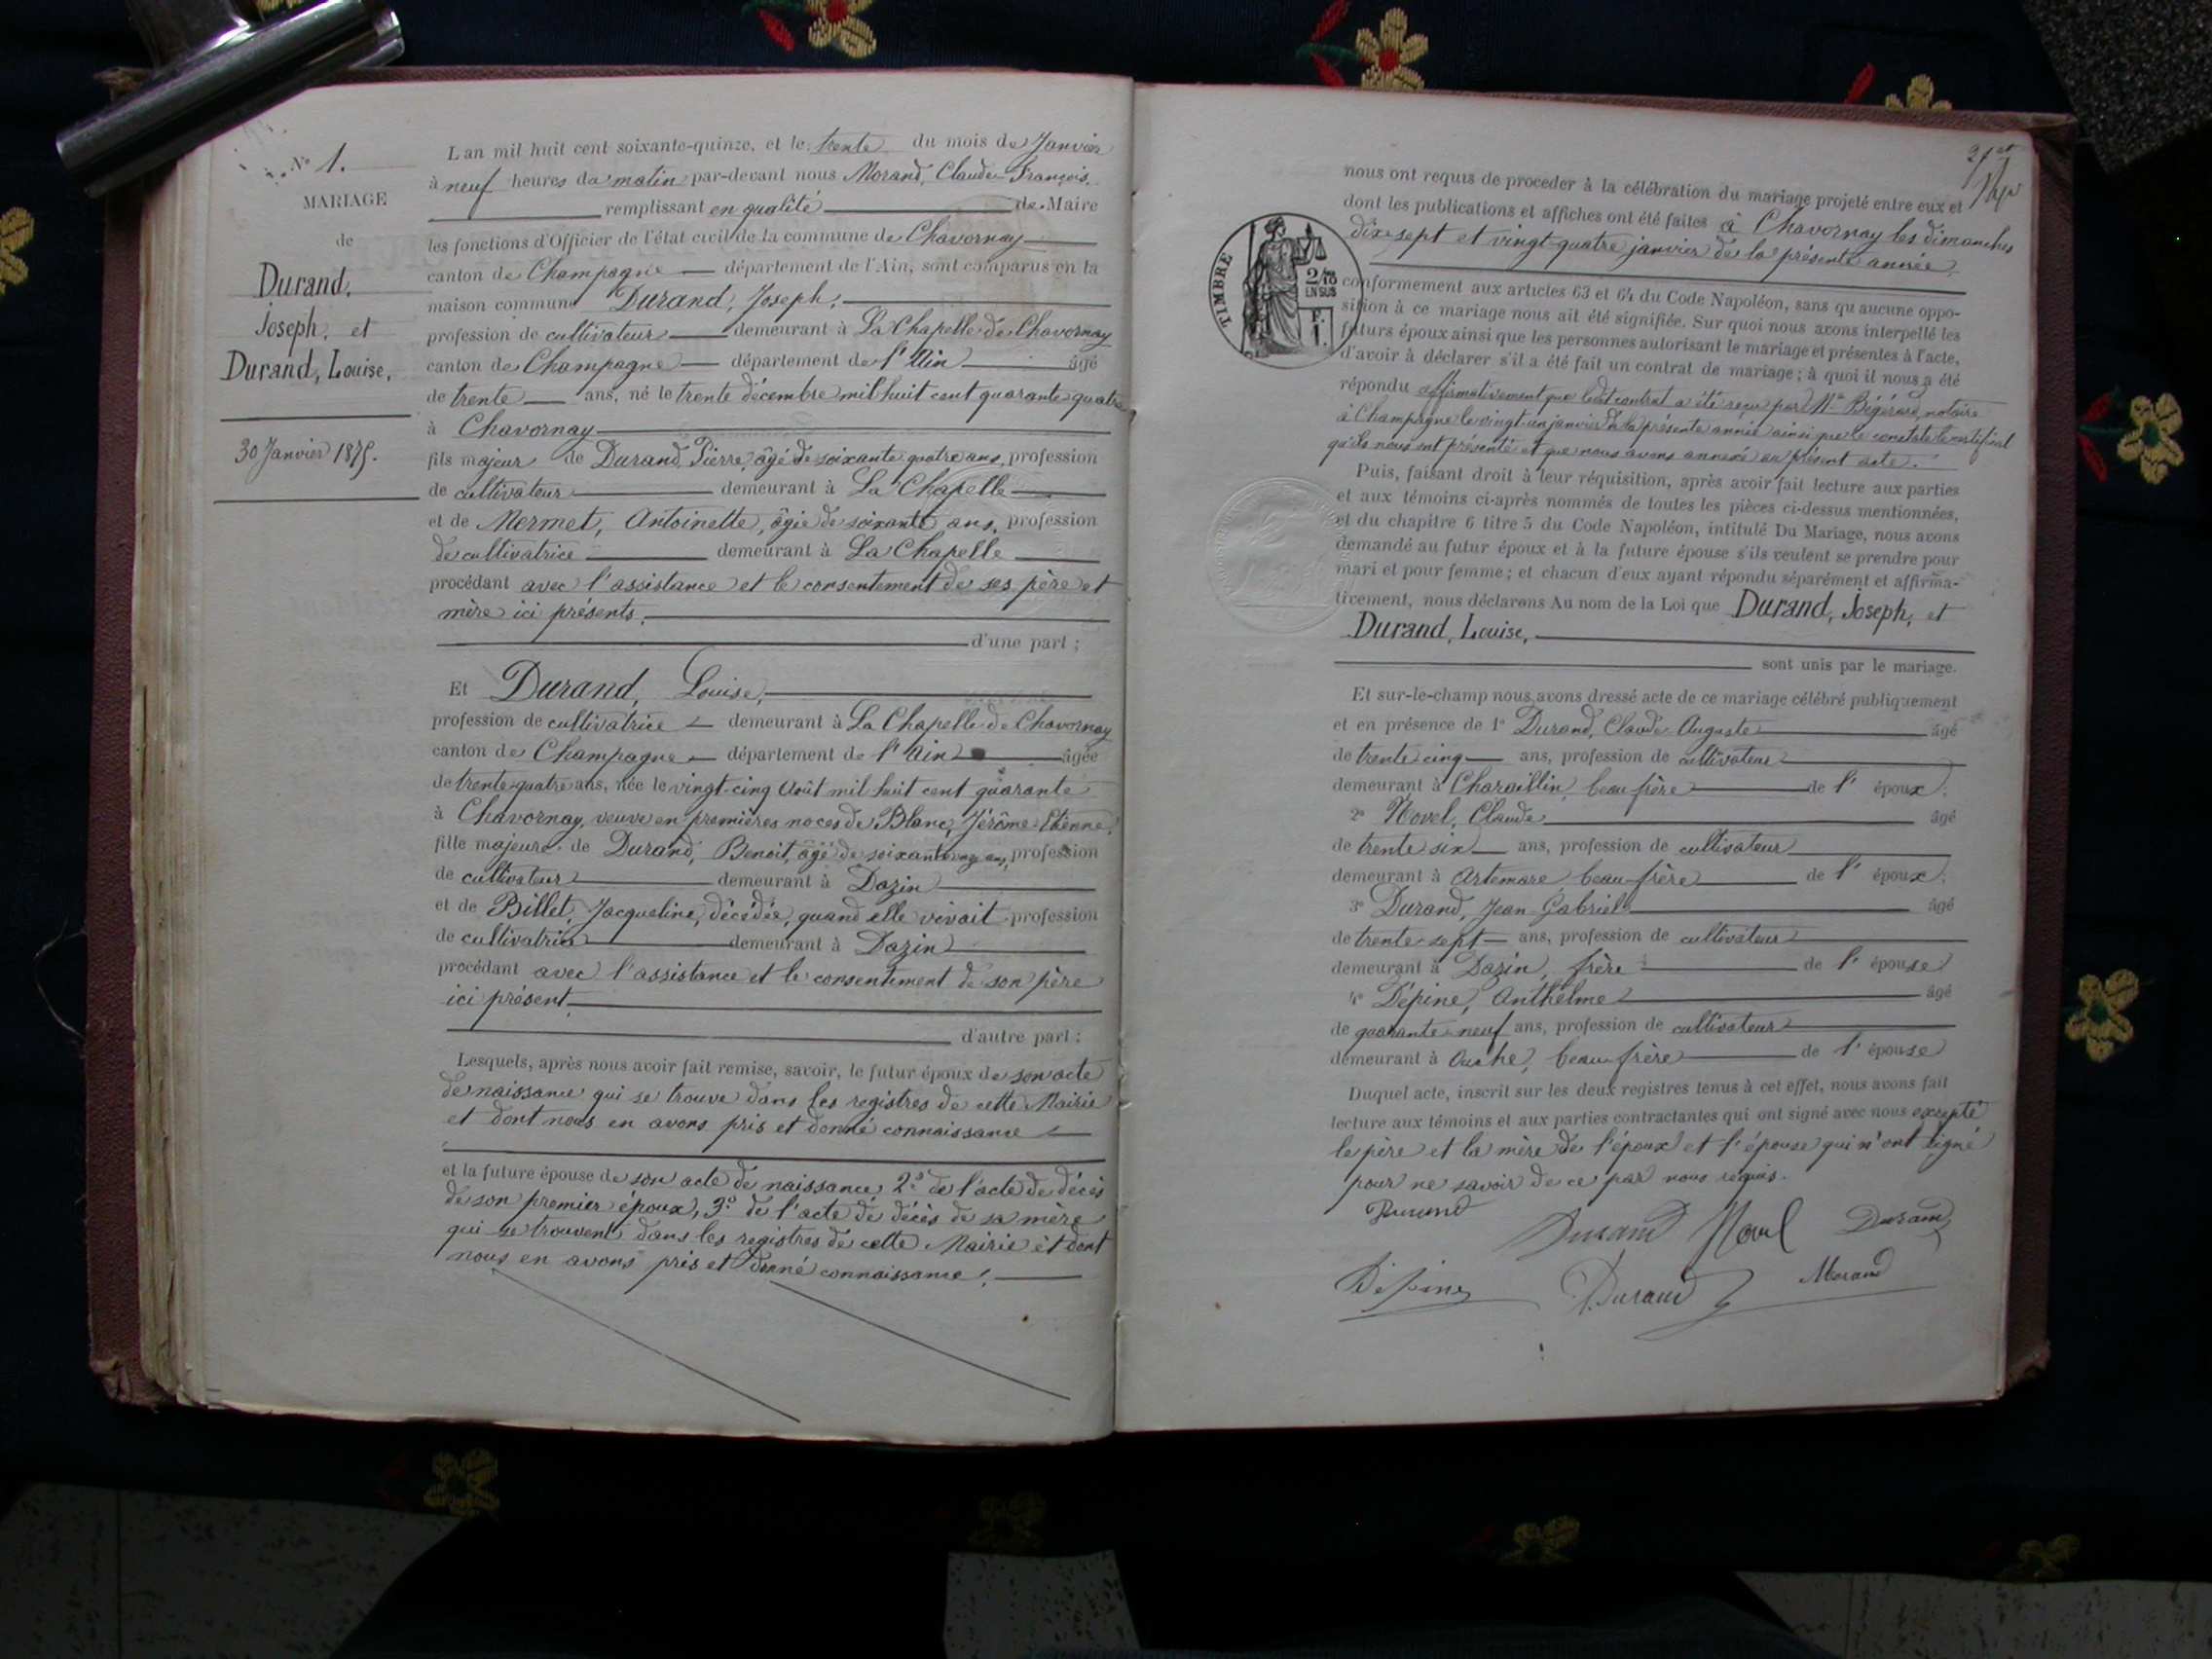 N° 1.
MARIAGE
de
Durand,
Joseph, et
Durand, Louise,
30 Janvier 1875.
L'an mil huit cent soixante-quinze, et le trente du mois de Janvier
à neuf heures du matin par-devant nous Morand, Claude-François,
remplissant en qualité de Maire
les fonctions d'Officier de l'état civil de la commune de Chavornay
canton de Champagne département de l'Ain, sont comparus en la
maison commune Durand, Joseph,
profession de cultivateur demeurant à La Chapelle de Chavornay
canton de Champagne département de l'Ain âgé
de trente ans, né le trente décembre mil huit cent quarante quatre
à Chavornay
fils majeur de Durand, Pierre, âgé de soixante quatre ans, profession
de cultivateur demeurant à La Chapelle
et de Mermet, Antoinette, âgée de soixante ans, profession
de cultivatrice demeurant à La Chapelle
procédant avec l'assistance et le consentement de ses père et
mère ici présents,
d'une part ;
Et Durand, Louise,
profession de cultivatrice demeurant à La Chapelle de Chavornay
canton de Champagne département de l'Ain âgée
de trente-quatre ans, née le vingt-cinq Août mil huit cent quarante
à Chavornay, veuve en premières noces de Blanc, Jérôme-Etienne,
fille majeure de Durand, Benoit, âgé de ans, profession
de cultivateur demeurant à Dazin
et de Billet, Jacqueline, décédée, quand elle vivait profession
de cultivatrice demeurant à Dazin
procédant avec l'assistance et le consentement de son père
ici présent,
d'autre part ;
Lesquels, après nous avoir fait remise, savoir, le futur époux de son acte
de naissance qui se trouve dans les registres de cette Mairie
et dont nous en avons pris et donné connaissance
et la future épouse de son acte de naissance 2° de l'acte de décès
de son premier époux, 3° de l'acte de décès de sa mère
qui se trouvent dans les registres de cette Mairie et dont
nous en avons pris et donné connaissance.
nous ont requis de proceder à la célébration du mariage projeté entre eux et
dont les publications et affiches ont été faites à Chavornay les dimanches
dix-sept et vingt-quatre janvier de la présente année,
TIMBRE
2/10
EN SUS
F.
1.
conformement aux articles 63 et 64 du Code Napoléon, sans qu'aucune oppo-
sition à ce mariage nous ait été signifiée. Sur quoi nous avons interpellé les
futurs époux ainsi que les personnes autorisant le mariage et présentes à l'acte,
d'avoir à déclarer s'il a été fait un contrat de mariage ; à quoi il nous a été
répondu affirmativement que ledit contrat a été reçu par Me notaire
à Champagne le vingt-un janvier de la présente année ainsi que le constate le certificat
qu'ils nous ont présenté et que nous avons annexé au présent acte.
Puis, faisant droit à leur réquisition, après avoir fait lecture aux parties
et aux témoins ci-après nommés de toutes les pièces ci-dessus mentionnées,
et du chapitre 6 titre 5 du Code Napoléon, intitulé Du Mariage, nous avons
demandé au futur époux et à la future épouse s'ils veulent se prendre pour
mari et pour femme ; et chacun d'eux ayant répondu séparément et affirma-
tivement, nous déclarons Au nom de la Loi que Durand, Joseph, et
Durand, Louise,
sont unis par le mariage.
Et sur-le-champ nous avons dressé acte de ce mariage célébré publiquement
et en présence de 1° Durand, Claude Auguste âgé
de trente cinq ans, profession de cultivateur
demeurant à Charaillin, beau frère de l'époux.
2° Novel, Claude âgé
de trente six ans, profession de cultivateur
demeurant à Artemare, beau-frère de l'époux.
3° Durand, Jean-Gabriel âgé
de trente-sept ans, profession de cultivateur
demeurant à Dazin, frère de l'épouse
4° Dépine, Anthelme âgé
de quarante-neuf ans, profession de cultivateur
demeurant à Ouche, beau-frère de l'épouse
Duquel acte, inscrit sur les deux registres tenus à cet effet, nous avons fait
lecture aux témoins et aux parties contractantes qui ont signé avec nous excepté
le père et la mère de l'époux et l'épouse qui n'ont signé
pour ne savoir de ce par nous requis.
Durand
Durand Novel Durand
Dépine Durand Morand